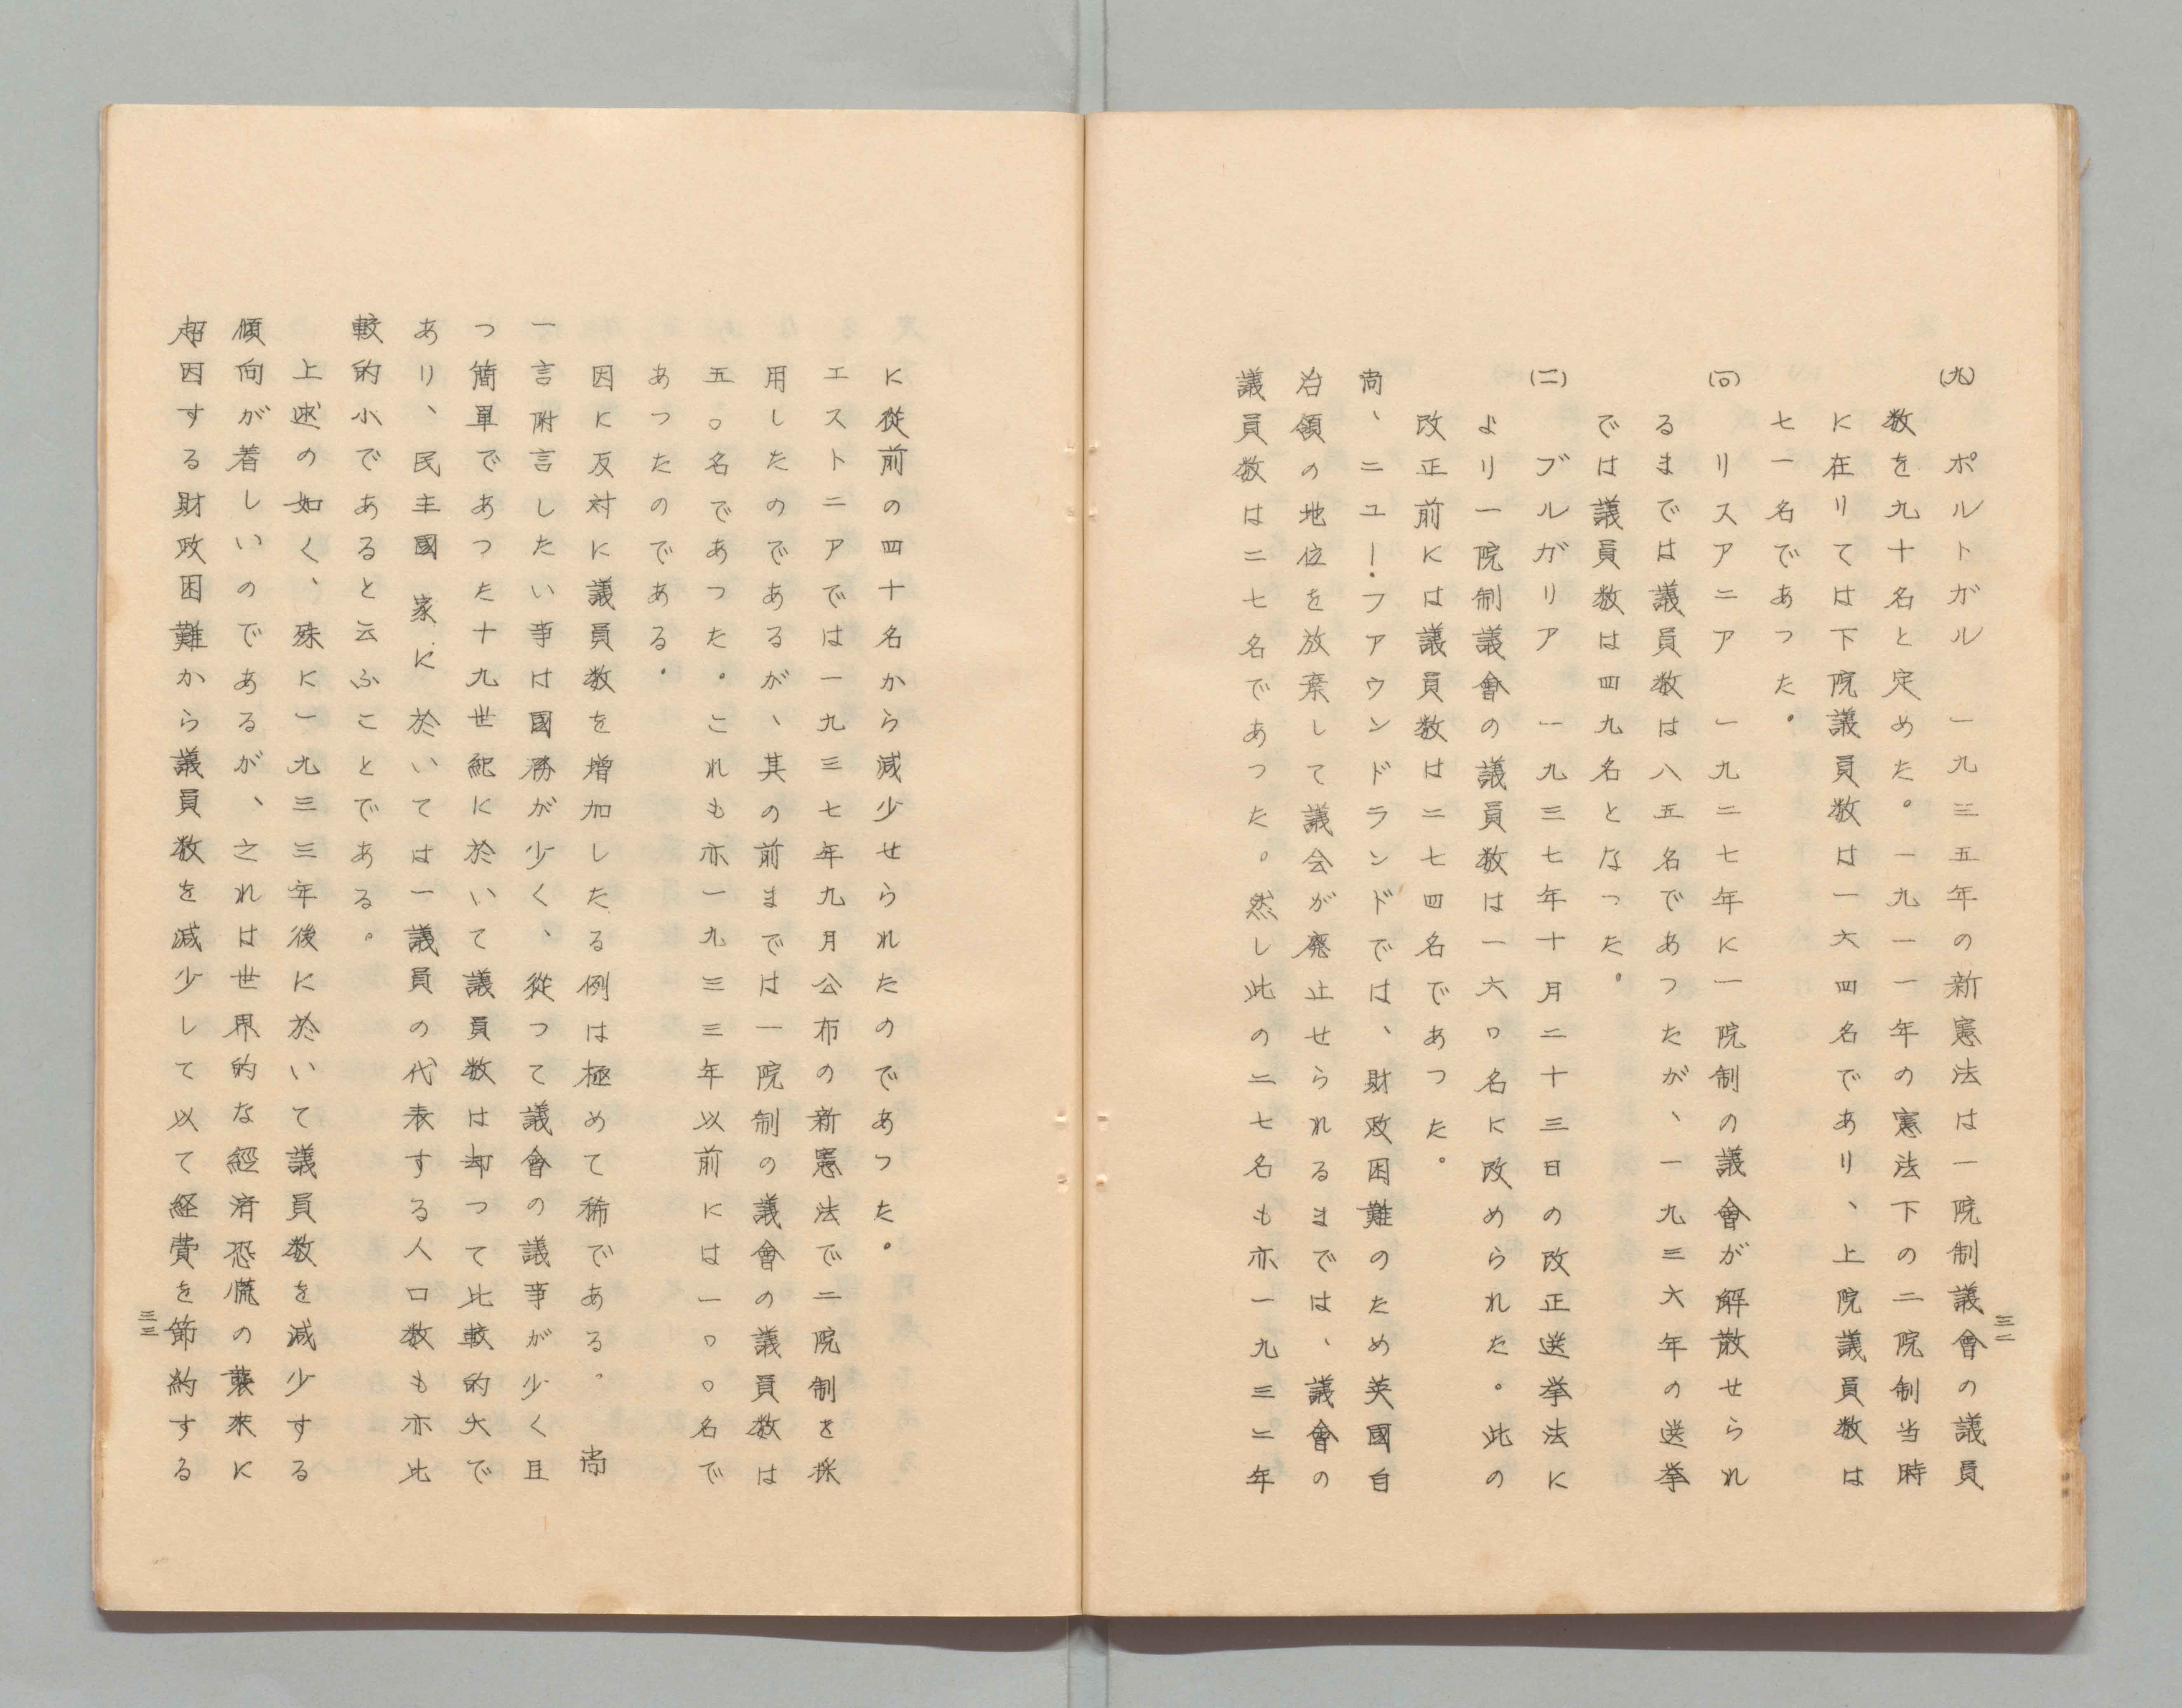 (九)　ポルトガル　一九三五年の新憲法は一院制議會の議員
数を九十名と定めた。一九一一年の憲法下の二院制当時
に在りては下院議員数は一六四名であり、上院議員数は
七一名であった。
(一〇)　リスアニア　一九二七年に一院制の議會が解散せられ
るまでは議員数は八五名であつたが、一九三六年の送挙
では議員数は四九名となった。
(一一)　ブルガリア　一九三七年十月二十三日の改正選挙法に
より一院制議會の議員数は一六〇名に改められた。此の
改正前には議員数は二七四名であつた。
尚、ニユー・フアウンドランドでは、財政困難のため英國自
治領の地位を放棄して議会が廃止せられるまでは、議會の
議員数は二七名であつた。然し此の二七名も亦一九三二年
三二
に從前の四十名から減少せられたのであつた。
エストニアでは一九三七年九月公布の新憲法で二院制を採
用したのであるが、其の前までは一院制の議會の議員数は
五〇名であつた。これも亦一九三三年以前には一〇〇名で
あつたのである。
因に反対に議員数を増加したる例は極めて稀である。尚
一言附言したい事は國務が少く、從つて議會の議事が少く且
つ簡單であつた十九世紀に於いて議員数は却つて比較的大で
あり、民主國家に於いては一議員の代表する人口数も亦比
較的小であると云ふことである。
上述の如く、殊に一九三三年後に於いて議員数を減少する
傾向が着しいのであるが、之れは世界的な經済恐慌の襲来に
超因する財政困難から議員数を減少して以て経費を節約する
三三